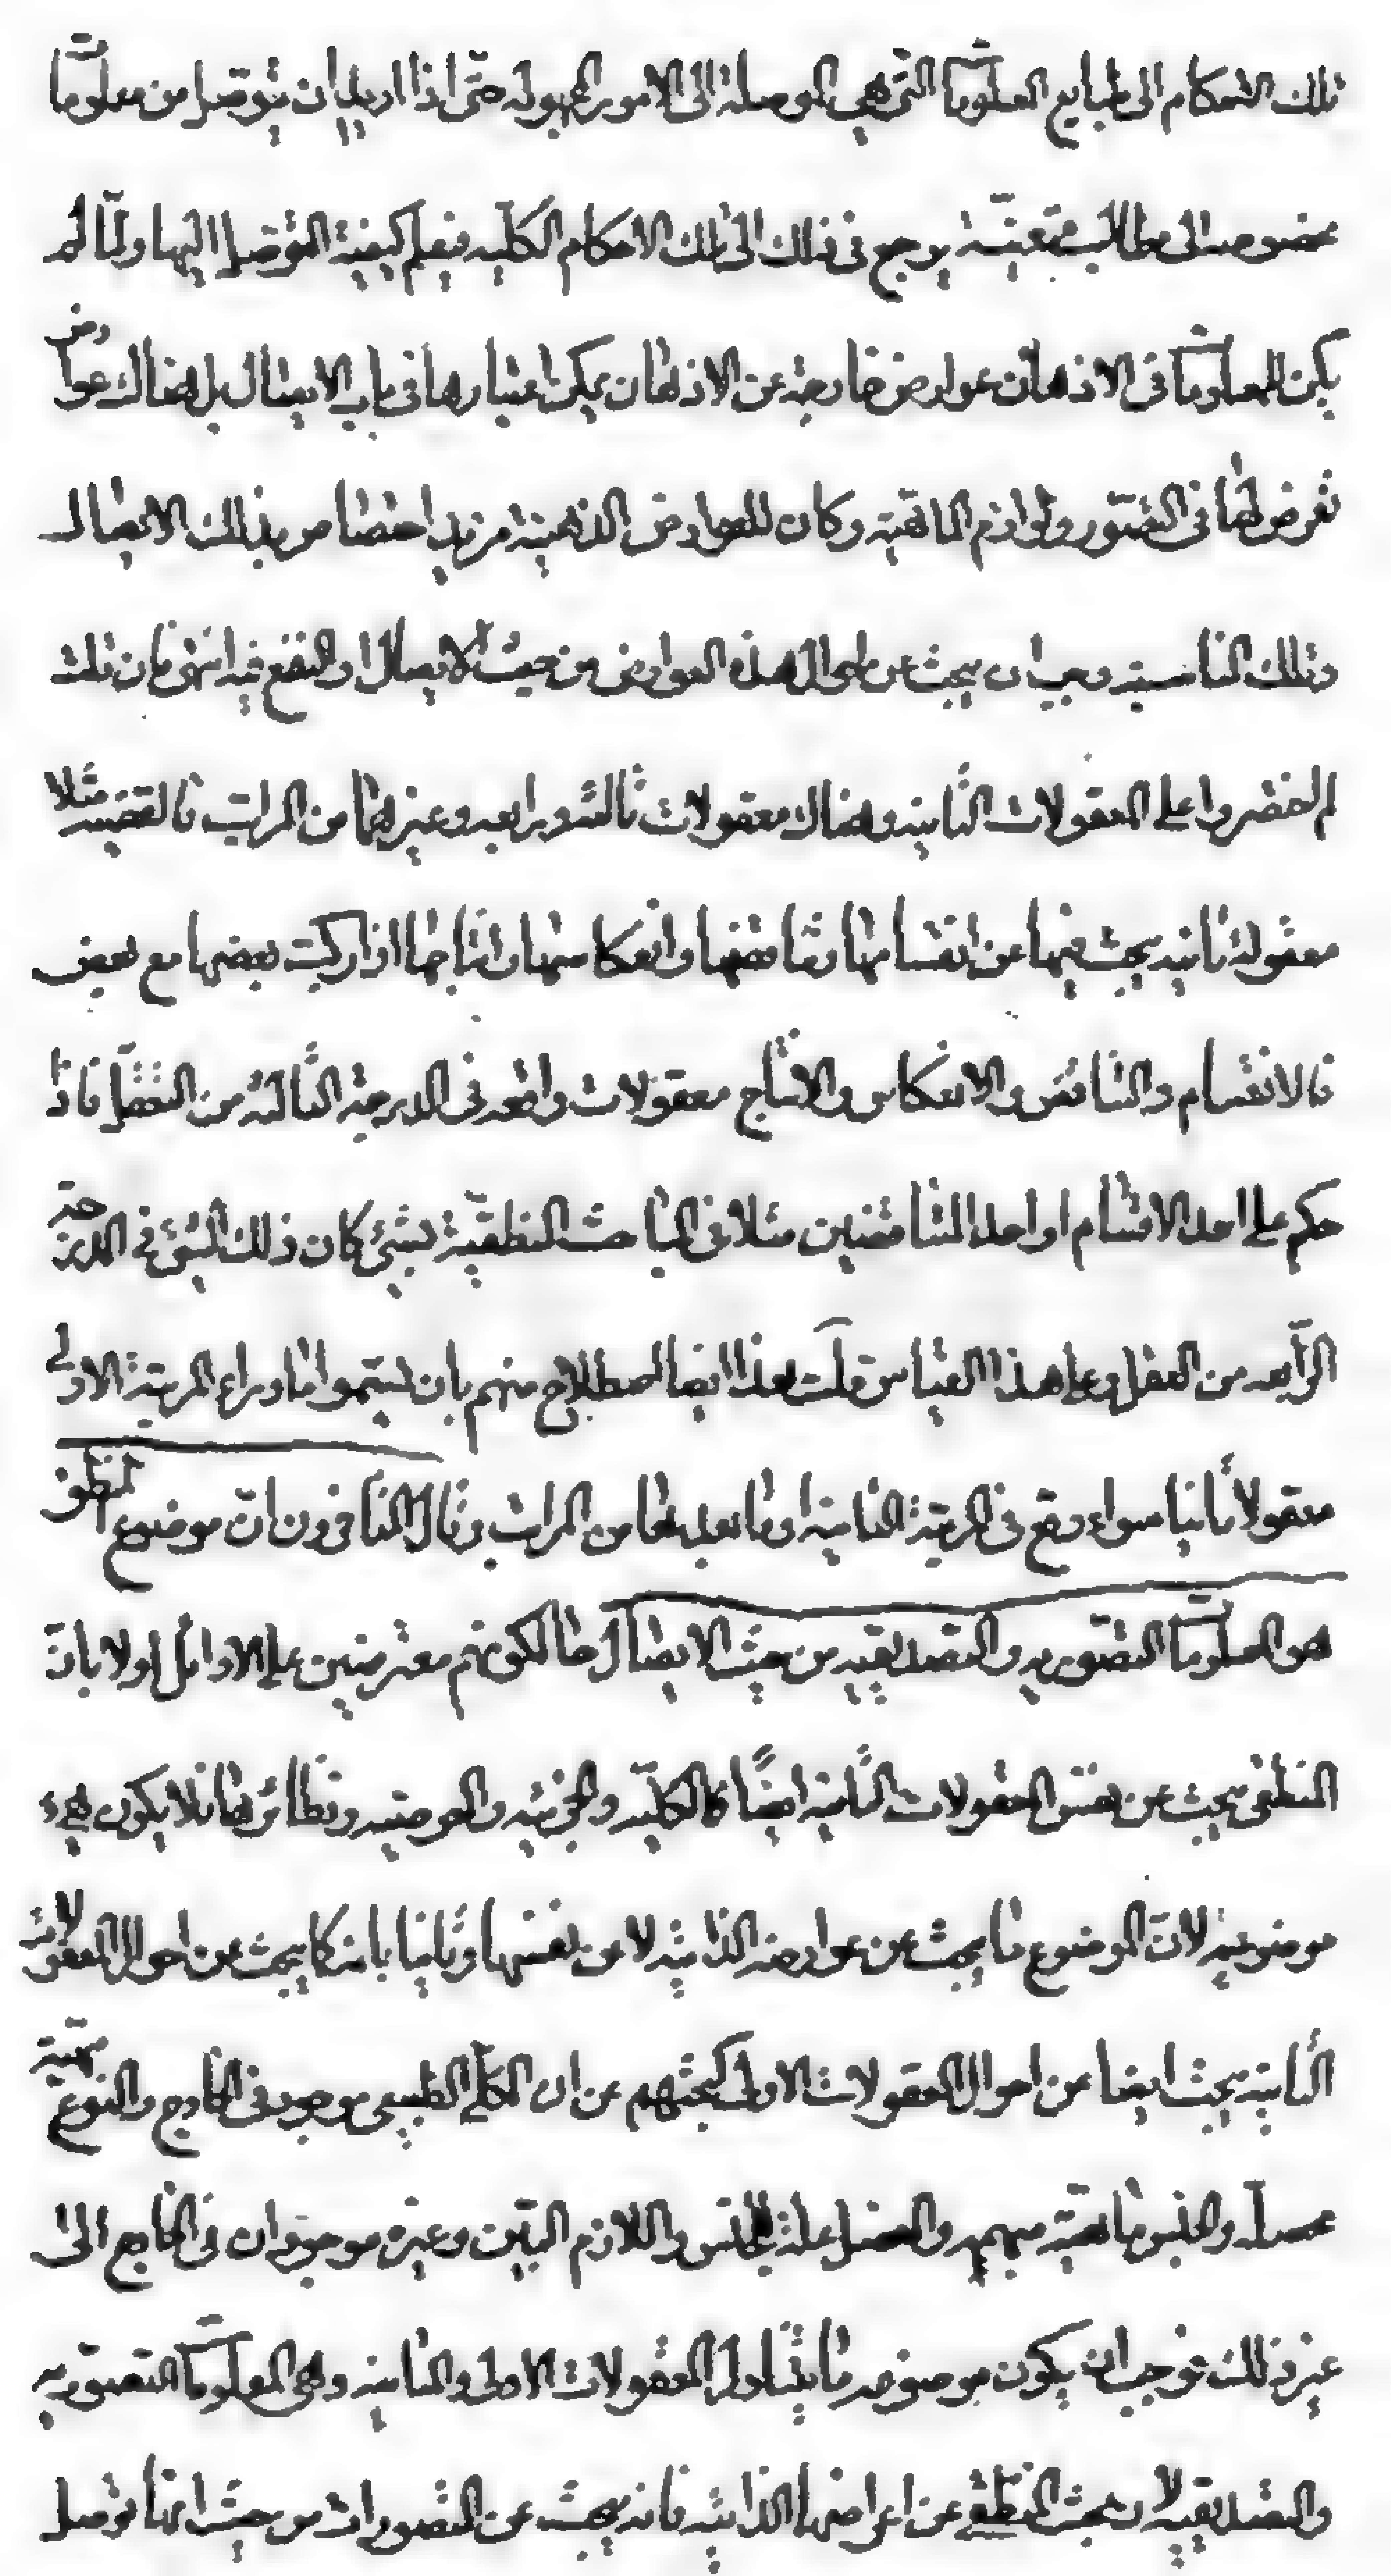 تلك الاحكام الى طبايع المعلومات التى هى الموصلة الى الامور المجهوله حتى اذا اريد ان يتوصل من معلومات
مخصوصة الى مطالب معينة يرجع فى ذلك الى تلك الاحكام الكليه فيعلم كيفية التوصل اليها ولما لم
يكن للمعلومات فى الاذهان عوارض خارجة عن الاذهان يمكن اعتبارها فى باب الايصال بل هناك عوارض
تعرض لها فى التصور ولوازم الماهية وكان للعوارض الذهنية مزيد اختصاص بذلك الايصال
وتلك المناسبة وجب ان يبحث عن احوال هذه العوارض من حيث الايصال او النفع فيه انتهى فان قلت
لم اقتصروا على المعقولات الثانيه وهناك معقولات ثالثه ورابعه وغيرها من المراتب فالقضيه مثلا
معقولة ثانيه يبحث فيها عن انقسامها وتناقضها وانعكاسها وانتاجها اذا ركبت بعضها مع بعض
فالانقسام والتناقض والانعكاس والانتاج معقولات واقعه فى الدرجة الثالثه من التعقل فاذا
حكم على احد الاقسام او احد المتناقضين مثلا فى المباحث المنطقية بشئ كان ذلك الشئ فى الدرجة
الرابعه من العقل وعلى هذا القياس قلت هذا ايضا اصطلاح منهم بان يسموا ما وراء المرتبة الاولى
معقولا ثانيا سواء وقع فى المرتبة الثانية او ما بعدها من المراتب وقال المتاخرون ان موضوع المنطق
هو المعلومات التصوريه والتصديقيه من حيث الايصال حالكونهم معترضين على الاوائل اولا بان
المنطقى يبحث عن نفس المعقولات الثانية ايضا كالكليه والجزئيه والعرضيه ونظائرها فلا يكون هى
موضوعه لان الموضوع ما يبحث عن عوارضه الذاتيه لا عن نفسها وثانيا بانه كما يبحث عن احوال المعقولات
الثانيه يبحث ايضا عن احوال المعقولات الاولى كبحثهم عن ان الكلى الطبيعى موجود فى الخارج والنوع ماهية
محصله والجنس ماهية مبهمه والفصل علة للجنس واللازم البين وغيره موجودان فى الخارج الى
غير ذلك فوجب ان يكون موضوعه ما يتناول المعقولات الاولى والثانيه وهى المعلومات التصوريه
والتصديقيه لان بحث المنطقى عن اعراضها الذاتيه فانه يبحث عن التصورات من حيث انها توصل